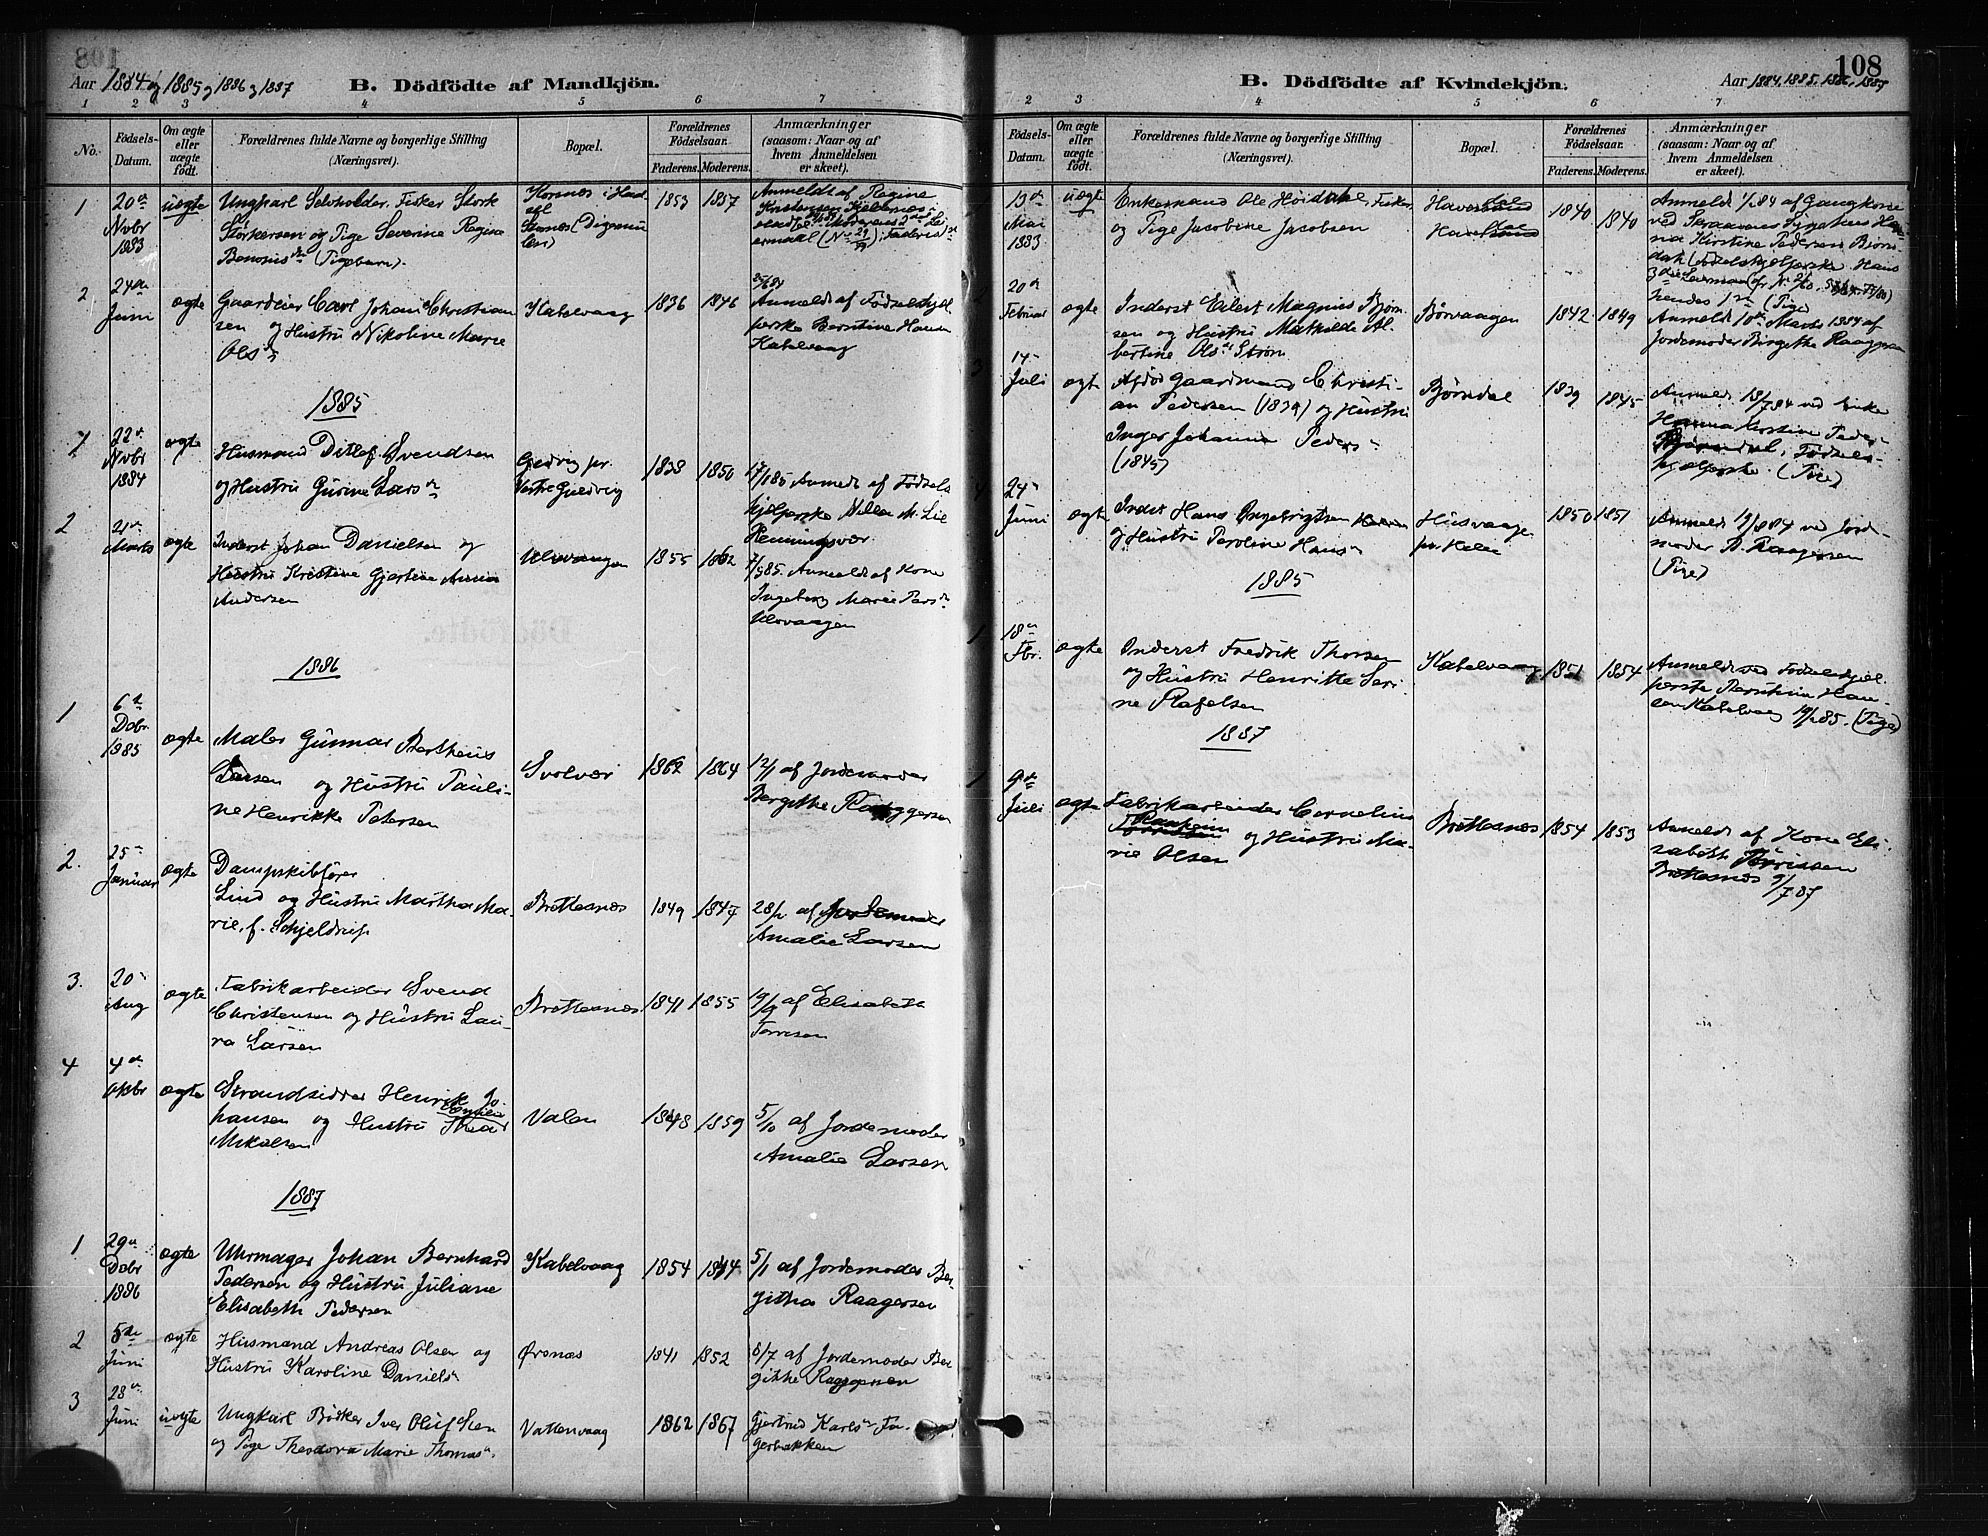 108
Aar 1884 og 1885 og 1886 og 1887
B. Dödfödte af Mandkjön.
1 2 3 4 5 6 7
No.
Födsels-
Datum.
Om ægte
eller
uægte
födt.
Forældrenes fulde Navne og borgerlige Stilling
(Næringsvei).
Bopæl.
Forældrenes
Födselsaar.
Faderens. Moderens.
Anmærkninger
(saasom: Naar og af
hvem Anmeldelsen
er skeet).
1
20de
Nvbr
1883
uægte
Ungkarl Selvholder, Fisker Stork
Storkersen og Pige Severine Regine
(Pigebarn).
1853 1857
Anmeldt af Regine
2
24de
Juni
ægte
Gaardeier Carl Johan Christian
sen og Hustru Nikoline Marie
Olsdr
Kabelvaag
1836 1846
Anmeldt af Födselshjel
perske Berntine Hansen
Kabelvaag
1885
1
22de
Nvbr
1884
ægte
Husmand Ditlef Svendsen
og Hustru Gurine Larsdr
Gjedvig pr.
Vestre
1838 1850
Anmeldt af Födsels
hjelperske
2
Marts
ægte
Inderst Johan Danielsen og
Hustru Kristine Gjertine Anna
Andersen
Ulvvaagen
1855 1862
7/5 85. Anmeldt af Kone
Ingeborg Marie
Ulvvaagen
1886
1
6te
Dcbr
1885
ægte
Maler Gunnar Bertheus
Larsen og Hustru Pauli-
ne Henrikke Petersen
Svolvær
1862 1864
12/1 af Jordemoder
Bergithe Raaggersen
2.
25de
Januar
ægte
Dampskibförer
Lind og Hustru Martha Ma-
rie, f. Schjeldrup
Brettesnæs
1849 1847
28/1 af Jordemoder
Amalie Larsen
3.
20de
Aug
ægte
Fabrikarbeider Svend
Christensen og Hustru Lau-
ra Larsen
Brettesnæs
1841 1855
19/9 af Elisabeth
Torrisen
4
4de
Oktbr
ægte
Strandsidder Henrik Jo-
hansen og Hustru
Mikalsen
Valen
1848 1859
5/10 af Jordemoder
Amalie Larsen
1887
1
29de
Dcbr
1886
ægte
Uhrmager Johan Bernhard
Pedersen og Hustru Juliane
Elisabeth Pedersen
Kabelvaag
1854 1844
5/1 af Jordemoder Ber-
githa Raagersen
2
5te
Juni
ægte
Husmand Andreas Olsen og
Hustru Karoline Danielsdr
Ørsnæs
1841 1852
8/7 af Jordemoder Ber
githe Raggersen
3
28de
Juni
uægte
Ungkarl Bödker Iver Oluf
og Pige Theodora Marie Thomasdr
Vattenvaag
1862 1867
Gjertrud Karlsdr Fa-
gerbakken
108
B. Dödfödte af Kvindekjön.
Aar 1884, 1885, 1886, 1887
2 3 4 5 6 7
Födsels-
Datum.
Om ægte
eller
uægte
födt.
Forældrenes fulde Navne og borgerlige Stilling
(Næringsvei).
Bopæl.
Forældrenes
Födselsaar.
Faderens. Moderens.
Anmærkninger
(saasom: Naar og af
hvem Anmeldelsen
er skeet).
13de
Mai
1883
uægte
Enkemand Ole Høidahl, Fisker,
og Pige Jacobine Jacobsen
1840 1840
20de
Februar
ægte
Inderst Eilert Magnus Björn
sen og Hustru Mathilde Al
bertine Olsdr Ström
Børvaagen
1842 1849
Anmeldt 10de Marts 1884 af
Jordemoder Birgitte Raaggersen
3
14de
Juli
ægte
Afdöd Gaardmand Christi-
an Pedersen (1839) og Hustru
Inger Johanna Pedersdr
(1845)
Bjørndal
1839 1845
Anmeldt 18/7 84 ved Enke
Hanna Kirstine Peder-
Födsels-
hjelperske. (Pige)
4
24de
Juni
ægte
Inderst Hans Ingebrigtsen
og Hustru Peroline Hansdr
Husvaage
pr. Helle
1850 1851
Anmeldt 19/8 84 ved Jord-
moder B. Raagersen
(Pige)
1885
1
18de
Fbr.
ægte
Inderst Fredrik Thorsen
og Hustru Henrikke Seri-
ne Rafelsen
Kabelvaag
1851 1854
Anmeldt ved Födselshjel-
perske Berntine Han-
sen Kabelvaag 19/2 85. (Pige)
1887
1
9de
Juli
ægte
Fabrikarbeider Cornelius
Ranheim
og Hustru Ma-
rie Olsen
Brettesnæs
1854 1853
Anmeldt af Kone Eli-
sabeth Torrissen
Brettesnæs 9/7 87